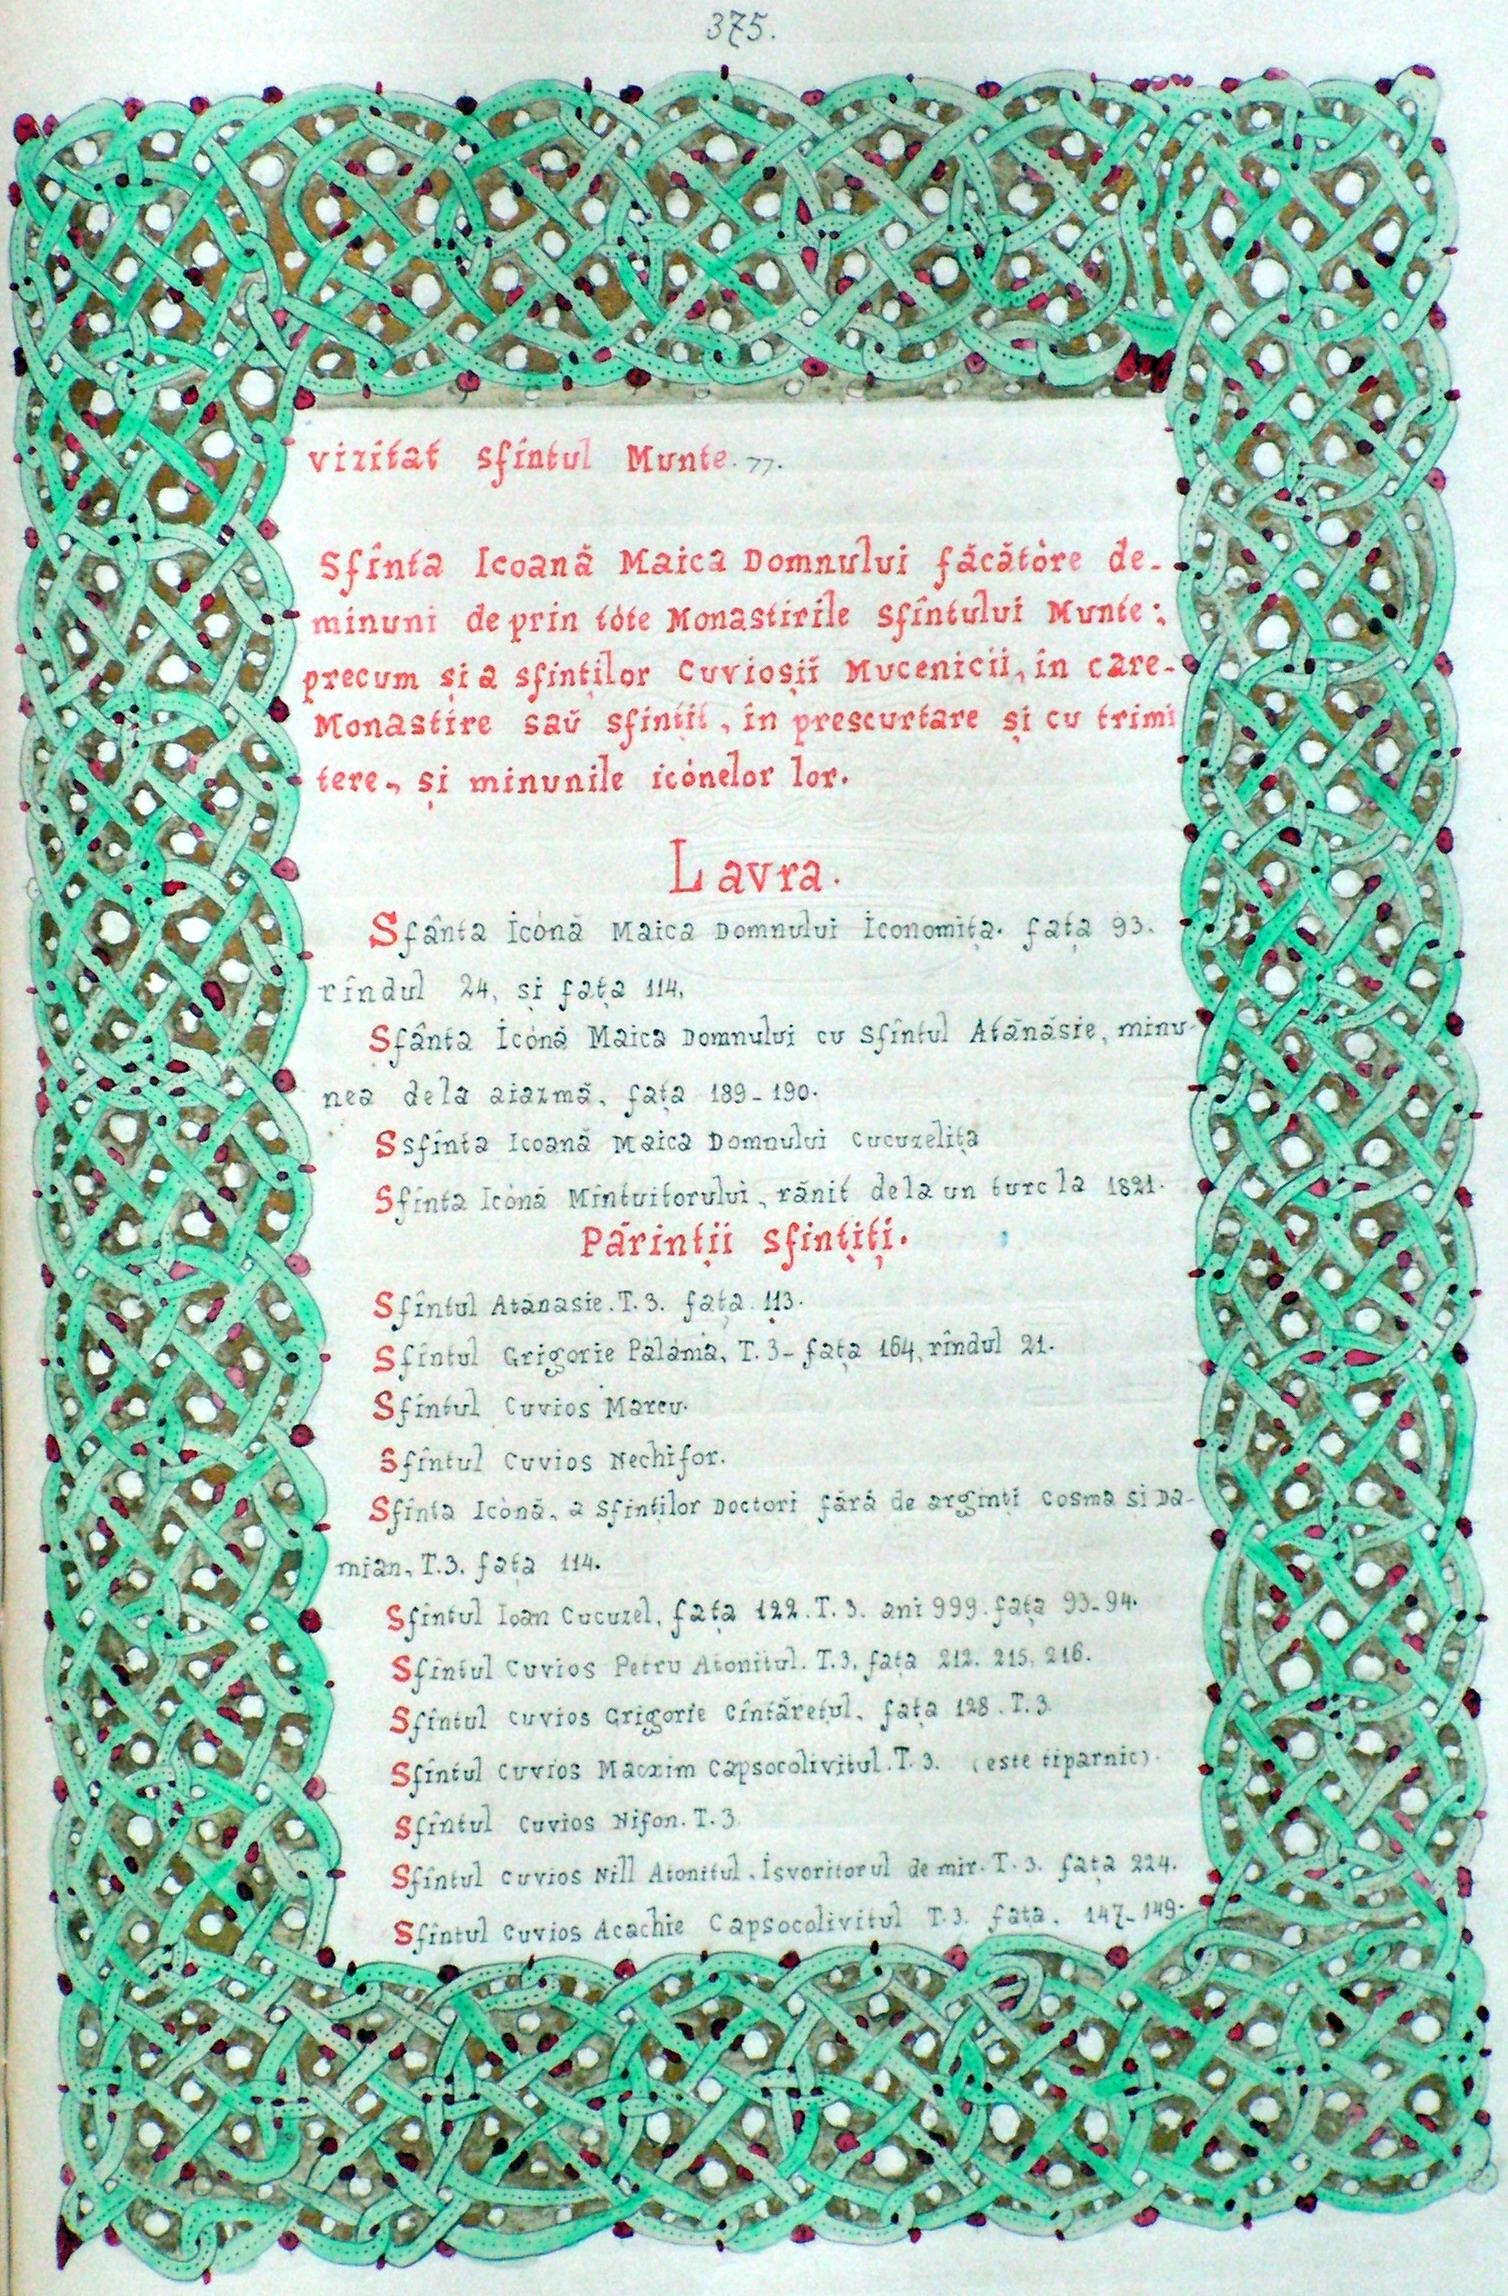 375.
vizitat sfîntul Munte. 77.
Sfînta Icoană Maica Domnului făcătòre de-
minuni de prin tòte Monastirile sfîntului Munte:,
precum și a sfinților Cuvioșiĭ Mucenicii, în care-
Monastire saŭ sfințiĭ, în prescurtare și cu trimi
tere, și minunile icònelor lor.
Lavra.
Sfânta İcònă Maica Domnului İconomița. fața 93.
rîndul 24, și fața 114,
Sfânta İcònă Maica Domnului cu Sfîntul Atănăsie, minu-
nea dela aiazmă, fața 189-190.
Ssfînta Icoană Maica Domnului Cucuzelița
Sfînta Icònă Mîntuitorului, rănit dela un turc la 1821.
Părinții sfințiți.
Sfîntul Atanasie. T. 3. fața. 113.
Sfîntul Grigorie Palama, T. 3- fața 164, rîndul 21.
Sfîntul Cuvios Marcu.
Sfîntul Cuvios Nechifor.
Sfînta Icònă, a Sfinților Doctori fără de arginți Cosma și Da-
mian, T.3. fața 114.
Sfîntul Ioan Cucuzel, fața 122. T. 3. ani 999. fața 93-94.
Sfîntul Cuvios Petru Atonitul. T.3, fata 212. 215, 216.
Sfîntul cuvios Grigorie Cîntărețul, fața 128. T. 3.
Sfîntul Cuvios Macxim Capsocolivitul. T. 3. (este tiparnic).
Sfîntul Cuvios Nifon. T. 3.
Sfîntul Cuvios Nill Atonitul, İsvoritorul de mir. T. 3. fața 224.
Sfîntul Cuvios Acachie Capsocolivitul T. 3. fața. 147-149.